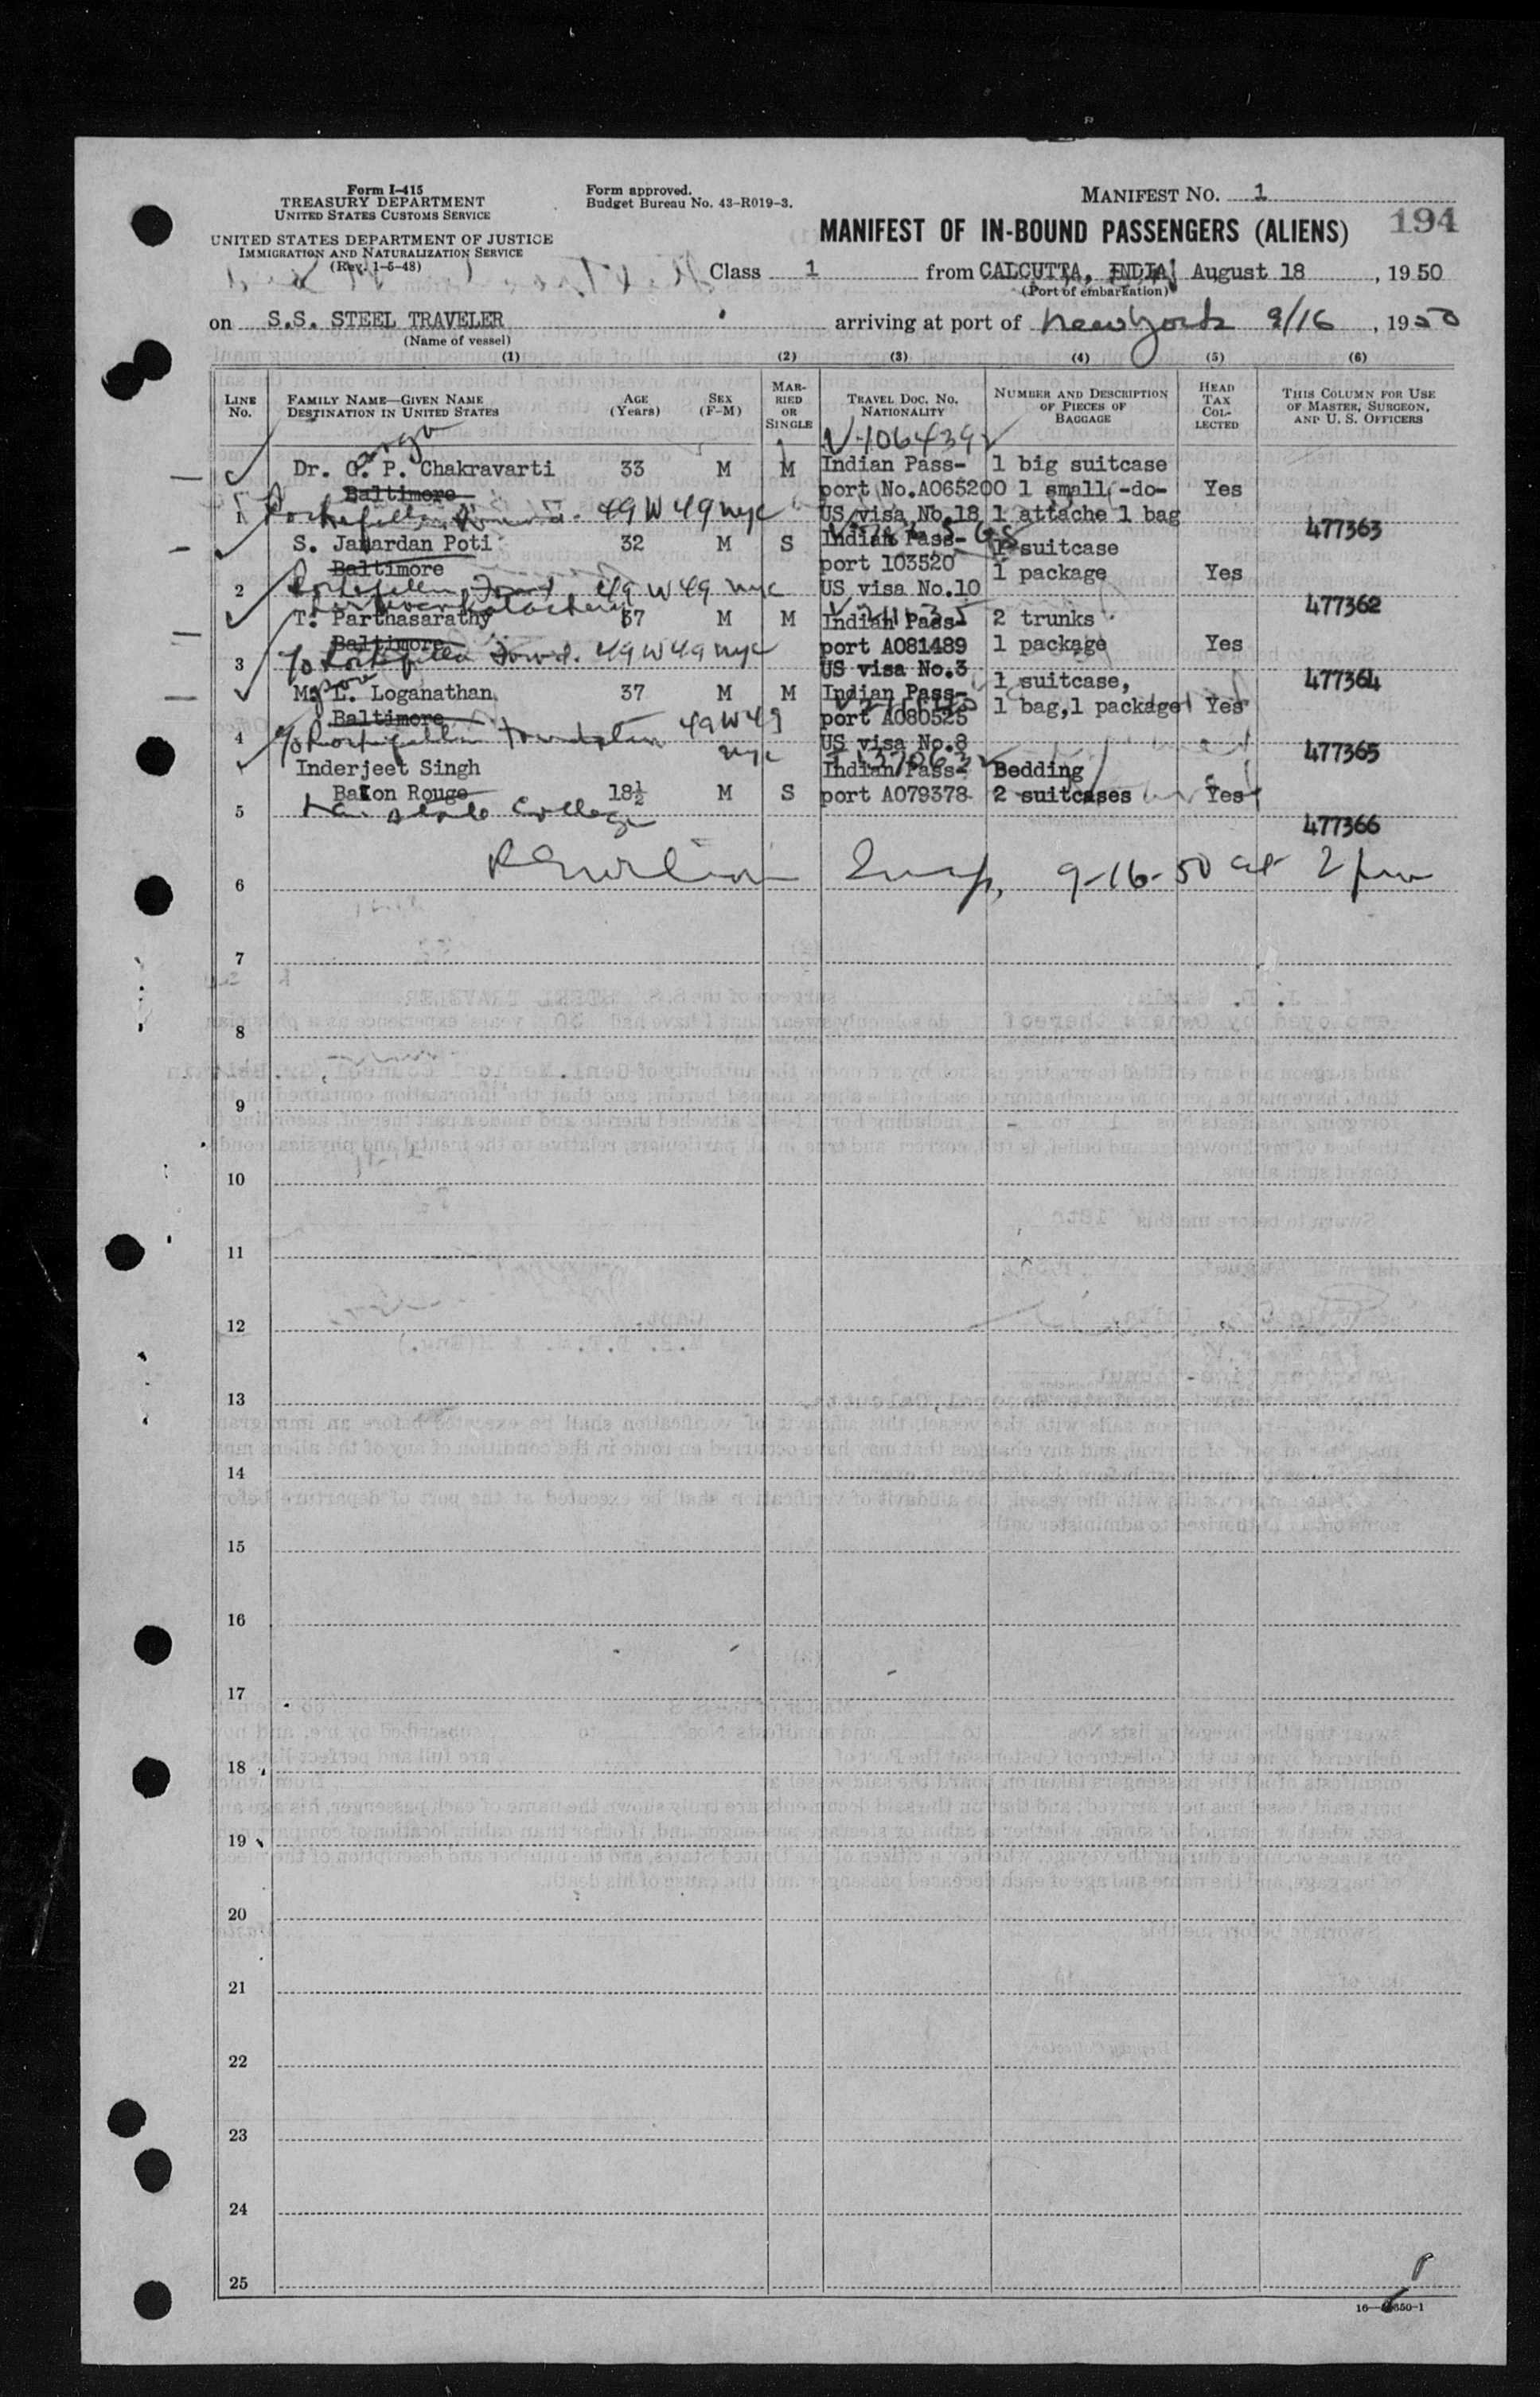 Form I-415
TREASURY DEPARTMENT
UNITED STATES CUSTOMS SERVICE
UNITED STATES DEPARTMENT OF JUSTICE
IMMIGRATION AND NATURALIZATION SERVICE
(Rev. 1-5-48)
Form approved.
Budget Bureau No. 43-R019-3.
MANIFEST NO. 1
MANIFEST OF IN-BOUND PASSENGERS (ALIENS) 194
Class 1 from CALCUTTA, INDIA, August 18, 1950
(Port of embarkation)
on S.S. STEEL TRAVELER arriving at port of New York 9/16, 1950
(Name of vessel)
(1) (2) (3) (4) (5) (6)
LINE No. FAMILY NAME—GIVEN NAME DESTINATION IN UNITED STATES AGE (Years) SEX (F-M) MARRIED OR SINGLE TRAVEL DOC. NO. NATIONALITY NUMBER AND DESCRIPTION OF PIECES OF BAGGAGE HEAD TAX COLLECTED THIS COLUMN FOR USE OF MASTER, SURGEON, AND U. S. OFFICERS
V-1064392
Dr. G. P. Chakravarti 33 M M Indian Pass- 1 big suitcase
Baltimore port No.A065200 1 small -do- Yes
1 Rockefeller Found. 49 W 49 nyc US visa No.18 1 attache 1 bag
477363
S. Janardan Poti 32 M S Indian Pass- 1 suitcase
Baltimore port 103520 1 package Yes
2 Rockefeller Found 49 W 49 nyc US visa No.10
477362
T. Parthasarathy 37 M M Indian Pass- 2 trunks
Baltimore port A081489 1 package Yes
3 c/o Rockefeller Found. 49 W 49 nyc US visa No.3
477364
1 suitcase,
L. Loganathan 37 M M Indian Pass- 1 bag,1 package Yes
Baltimore port A080525
4 c/o Rockefeller Foundation 49 W 49 nyc US visa No.8
477365
Inderjeet Singh Indian Pass- Bedding
Baton Rouge 18½ M S port A079378 2 suitcases Yes
5 La. State College
477366
6 Insp. 9-16-50 at 2 pm
7
8
9
10
11
12
13
14
15
16
17
18
19
20
21
22
23
24
25